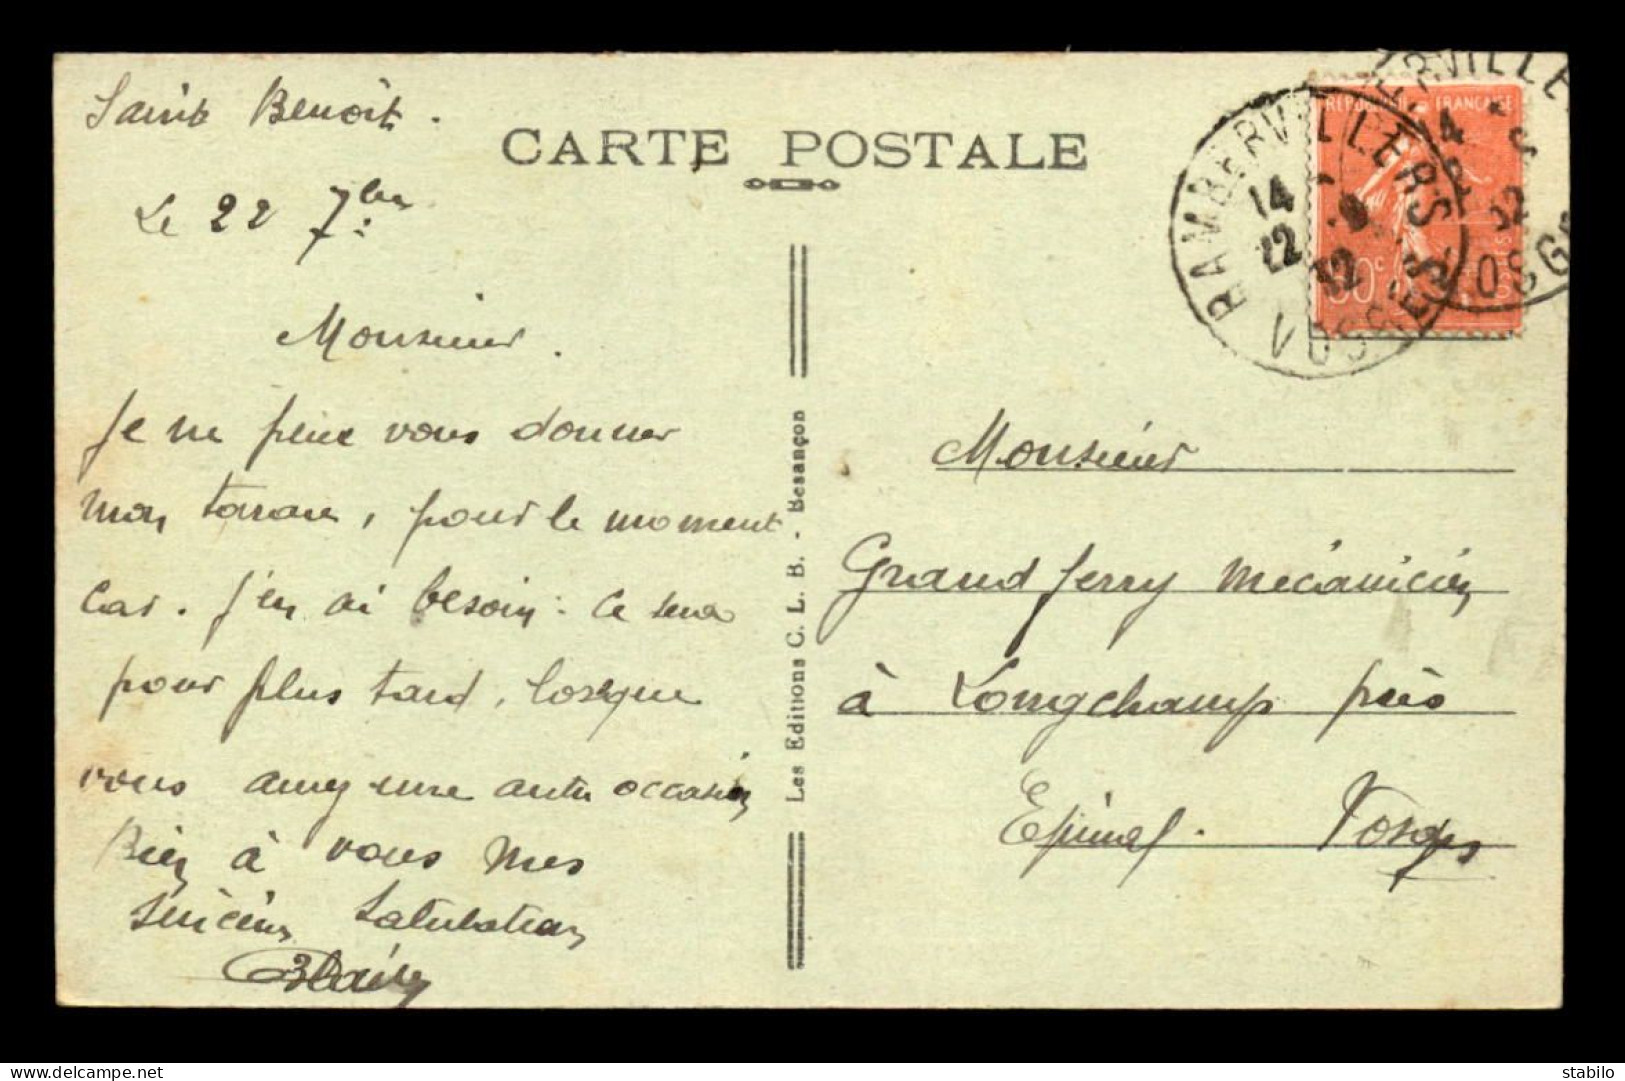 Saint Benoît.
CARTE POSTALE
Le 22 7bre
Monsieur.
Je ne peux vous donner
mon tarare, pour le moment
car. j'en ai besoin: ce sera
pour plus tard, losque
vous aurez une autre occasion
Bien à vous mes
sincères Salutations
Les Editions C. L. B. - Besançon
RAMBERVILLERS
14
22 - 9
32
VOSGES
REPUBLIQUE FRANCAISE
50c
Monsieur
Grandferry mécanicien
à Longchamp près
Epinal. Vosges
delcampe.net
stabilo